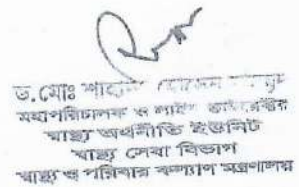 ড.মোঃ
মহাপরিচালক ও লাইন ডাইরেক্টর
স্বাস্থ্য অর্থনীতি ইউনিট
স্বাস্থ্য সেবা বিভাগ
স্বাস্থ্য ও পরিবার কল্যাণ মন্ত্রণালয়